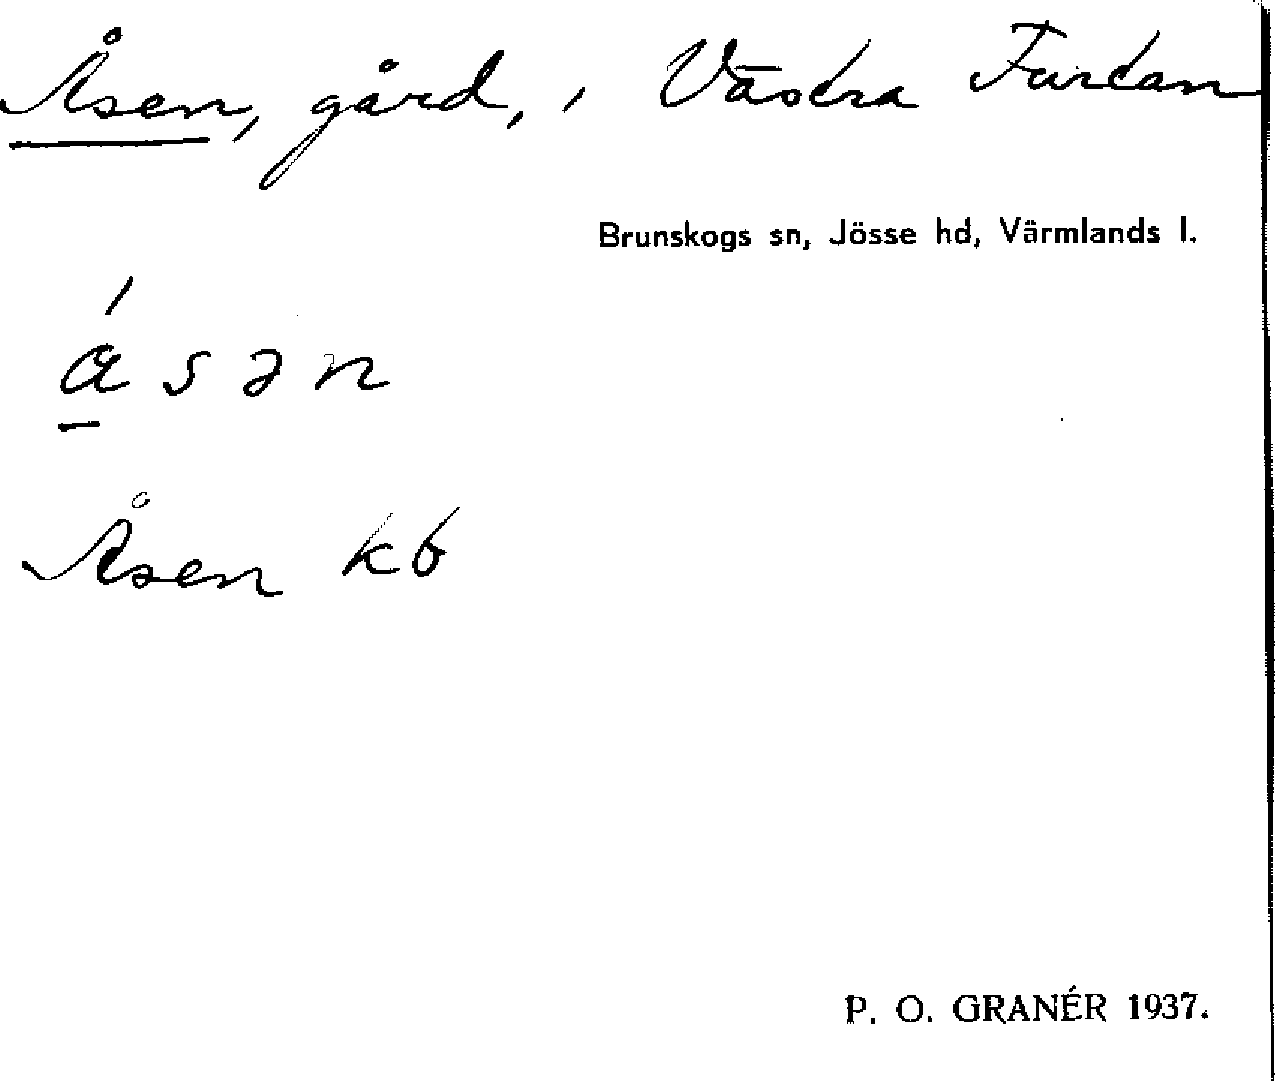 Åsen, gård, i Västra Furtan
Brunskogs sn, Jösse hd, Värmlands l.
á s ə n
Åsen kb
P. O. GRANÉR 1937.